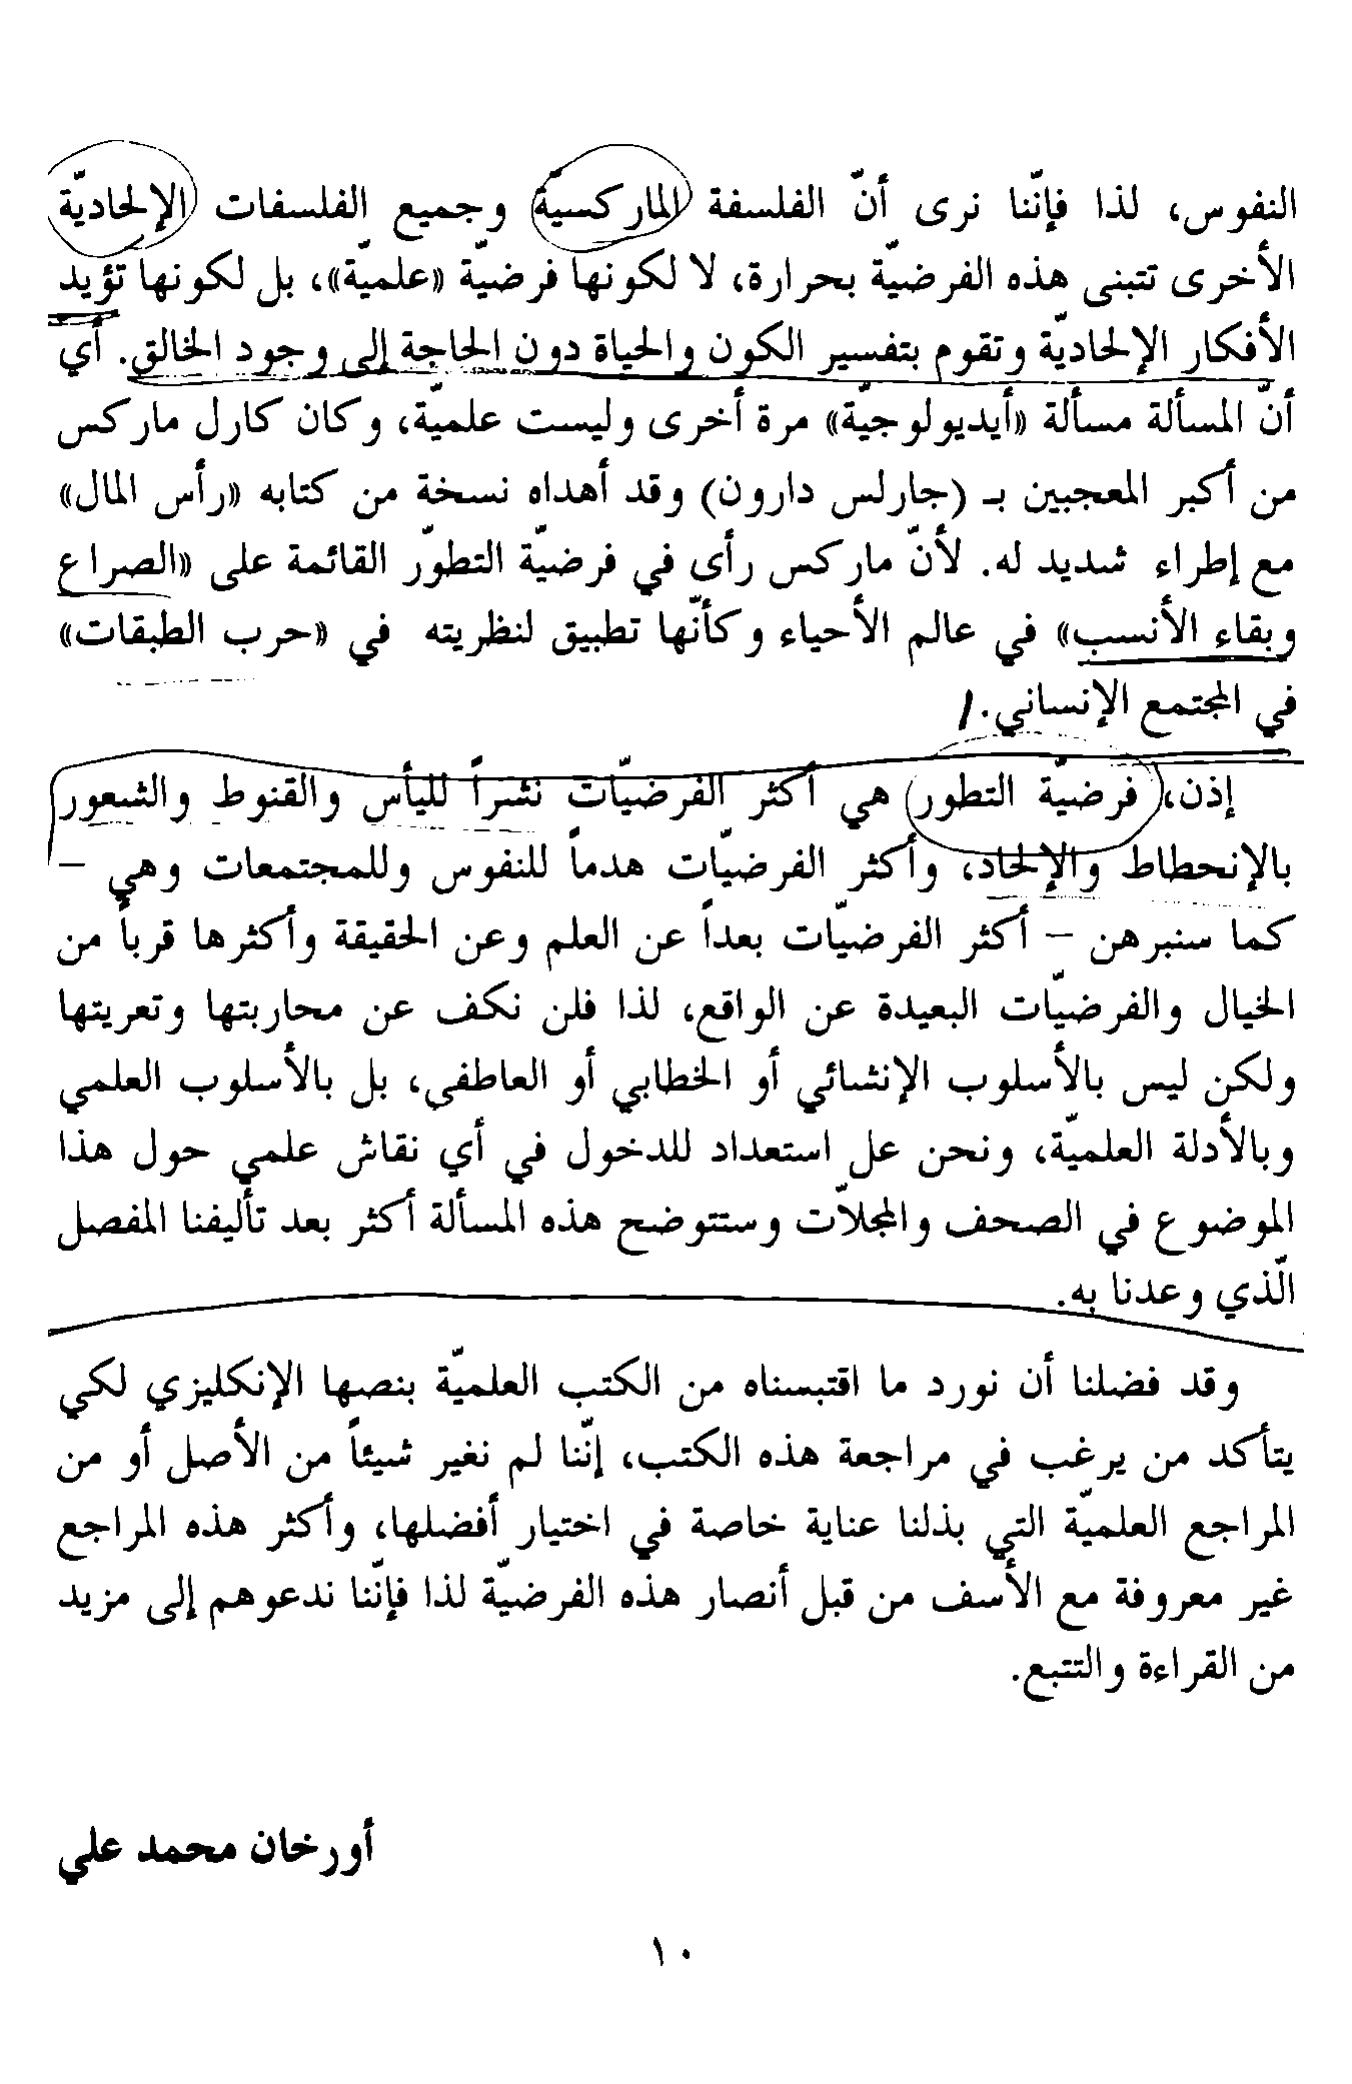 النفوس، لذا فإنّنا نرى أنّ الفلسفة الماركسيّة وجميع الفلسفات الإلحاديّة
الأخرى تتبنى هذه الفرضيّة بحرارة، لا لكونها فرضيّة «علميّة»، بل لكونها تؤيد
الأفكار الإلحاديّة وتقوم بتفسير الكون والحياة دون الحاجة إلى وجود الخالق. أي
أنّ المسألة مسألة «أيديولوجيّة» مرة أخرى وليست علميّة، وكان كارل ماركس
من أكبر المعجبين بـ (جارلس دارون) وقد أهداه نسخة من كتابه «رأس المال»
مع إطراء شديد له. لأنّ ماركس رأى في فرضيّة التطوّر القائمة على «الصراع
وبقاء الأنسب» في عالم الأحياء وكأنّها تطبيق لنظريته في «حرب الطبقات»
في المجتمع الإنساني.
إذن، فرضيّة التطور هي أكثر الفرضيّات نشراً لليأس والقنوط والشعور
بالإنحطاط والإلحاد، وأكثر الفرضيّات هدماً للنفوس وللمجتمعات وهي –
كما سنبرهن – أكثر الفرضيّات بعداً عن العلم وعن الحقيقة وأكثرها قرباً من
الخيال والفرضيّات البعيدة عن الواقع، لذا فلن نكف عن محاربتها وتعريتها
ولكن ليس بالأسلوب الإنشائي أو الخطابي أو العاطفي، بل بالأسلوب العلمي
وبالأدلة العلميّة، ونحن عل استعداد للدخول في أي نقاش علمي حول هذا
الموضوع في الصحف والمجلاّت وستتوضح هذه المسألة أكثر بعد تأليفنا المفصل
الّذي وعدنا به.
وقد فضلنا أن نورد ما اقتبسناه من الكتب العلميّة بنصها الإنكليزي لكي
يتأكد من يرغب في مراجعة هذه الكتب، إنّنا لم نغير شيئاً من الأصل أو من
المراجع العلميّة التي بذلنا عناية خاصة في اختيار أفضلها، وأكثر هذه المراجع
غير معروفة مع الأسف من قبل أنصار هذه الفرضيّة لذا فإنّنا ندعوهم إلى مزيد
من القراءة والتتبع.
أورخان محمد علي
١٠